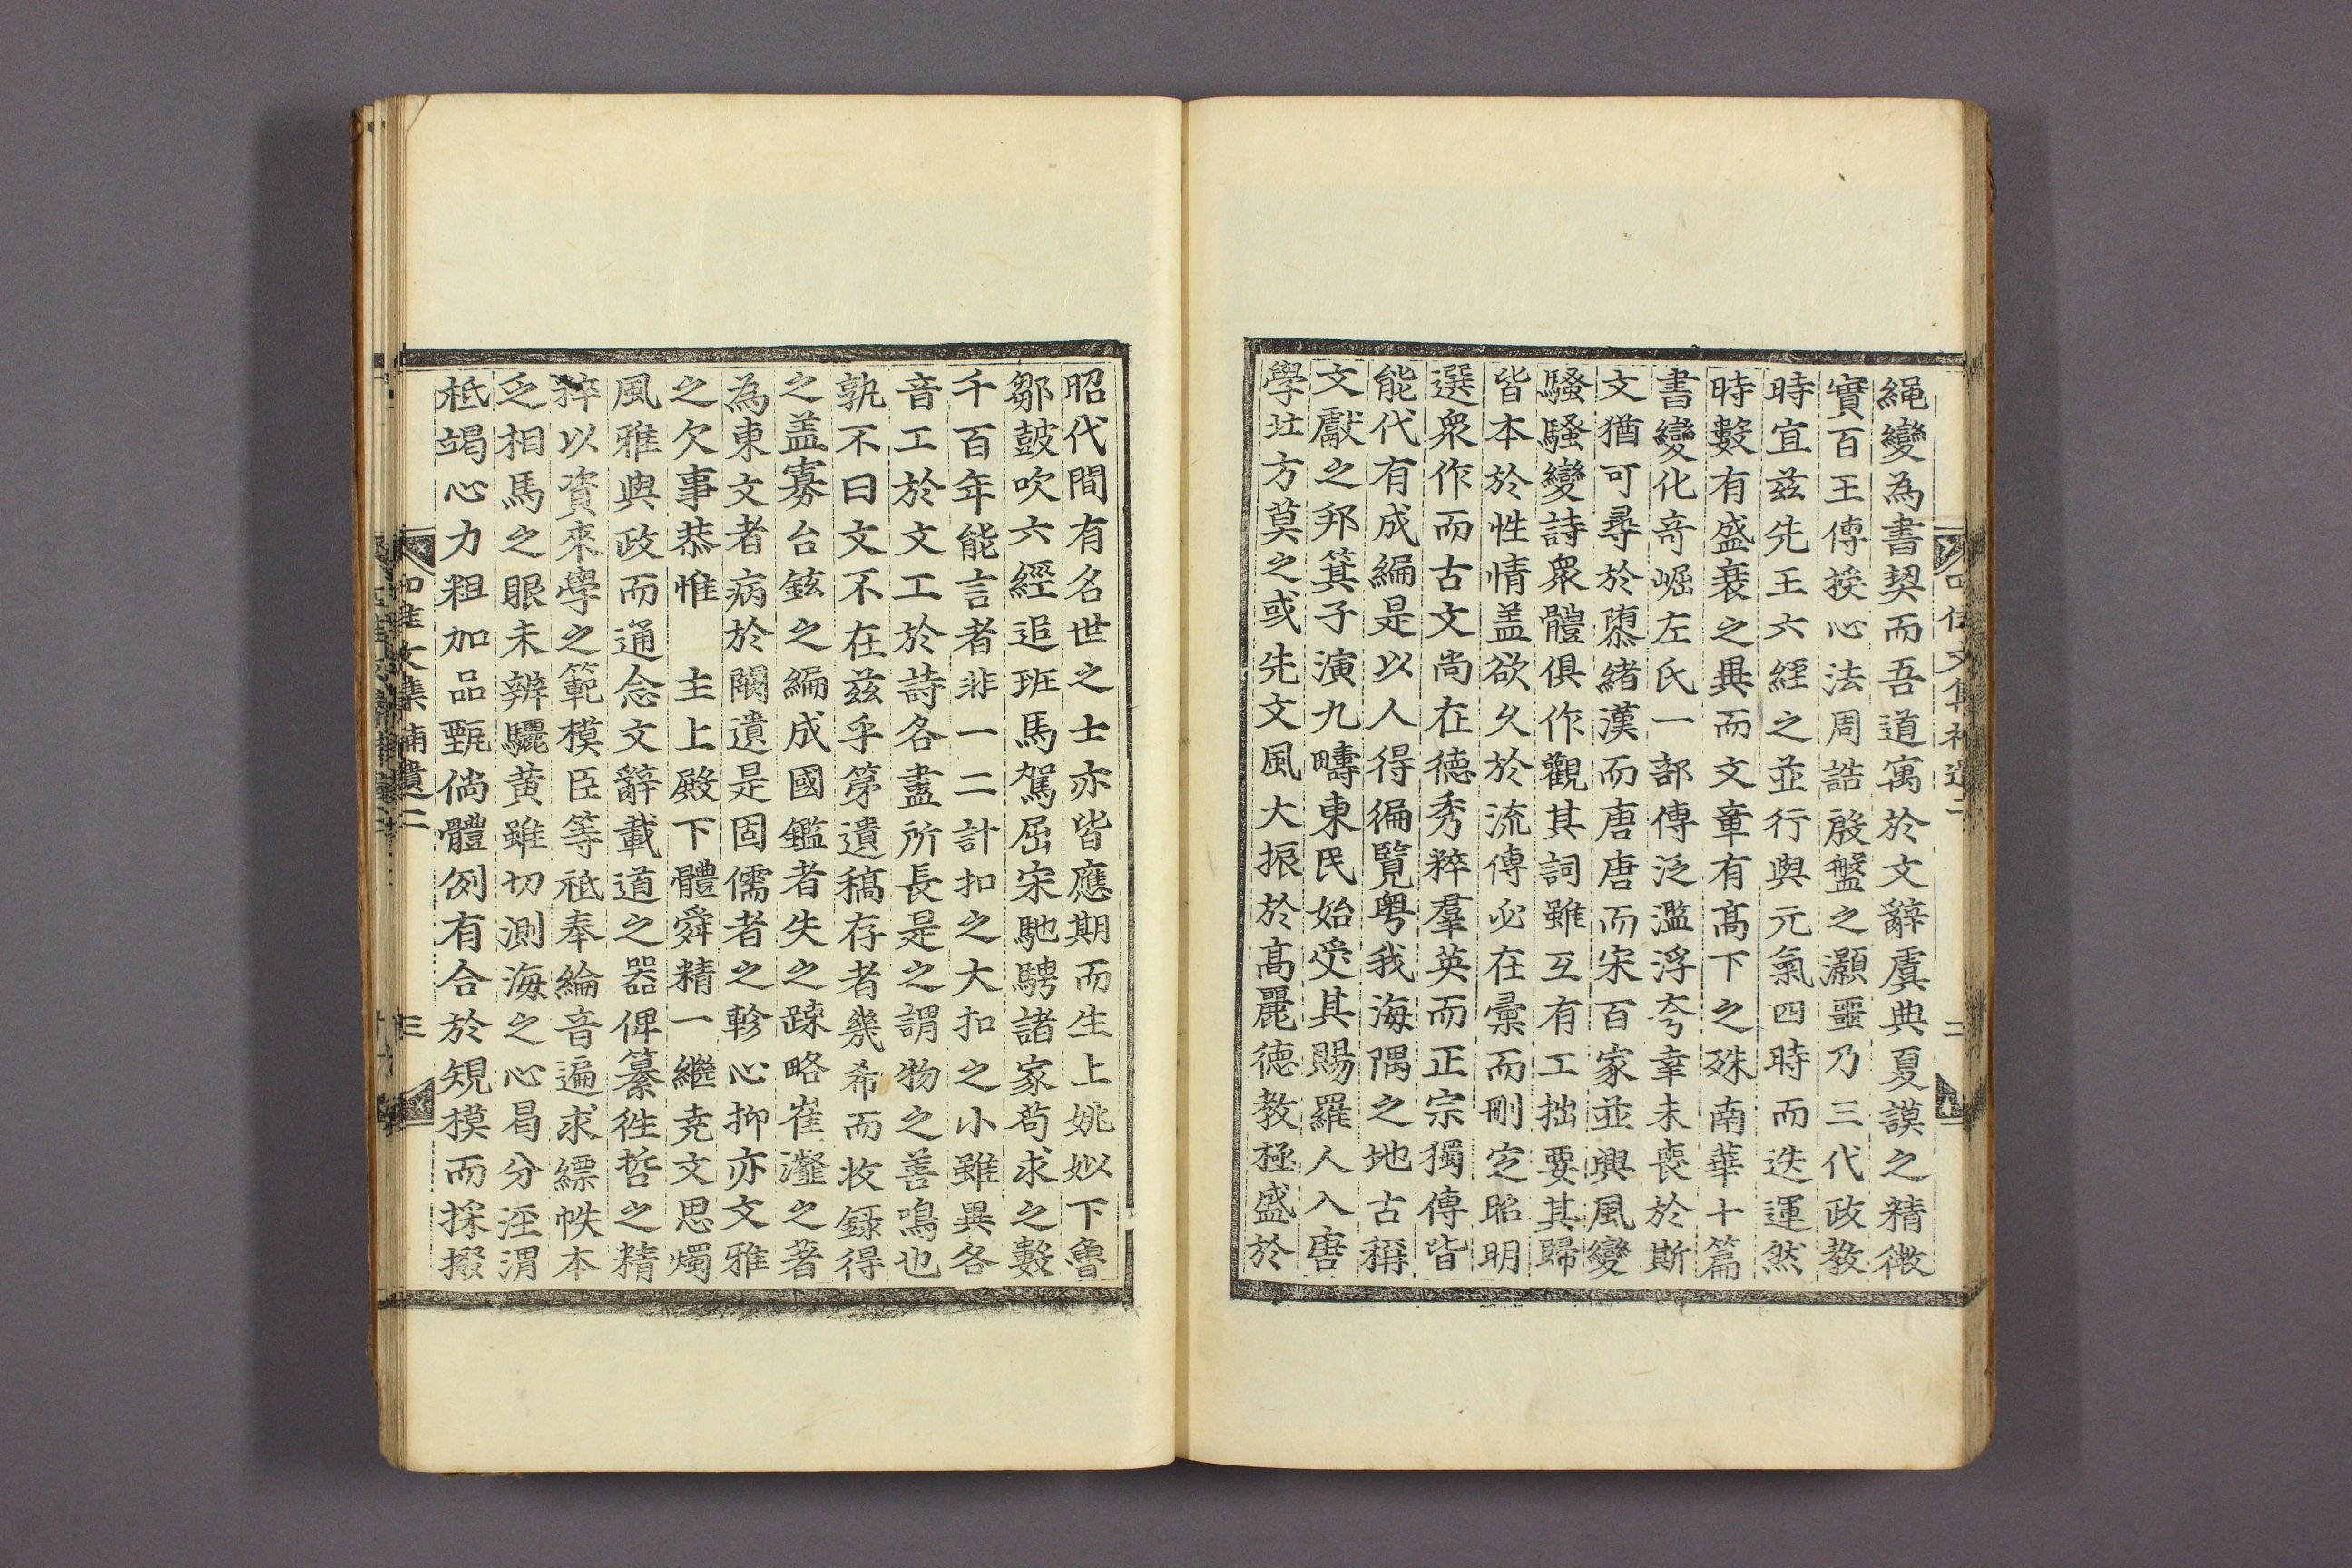 繩變為書契而吾道寓於文辭虞典夏謨之精微
實百王傳授心法周誥殷盤之灝噩乃三代政教
時宜茲先王六經之並行與元氣四時而迭運然
時數有盛衰之異而文章有高下之殊南華十篇
書變化奇崛左氏一部傳泛濫浮夸幸未喪於斯
文猶可尋於隳緒漢而唐唐而宋百家並興風變
騷騷變詩衆體俱作觀其詞雖互有工拙要其歸
皆本於性情盖欲久於流傳必在彙而刪定昭明
選衆作而古文尚在德秀粹羣英而正宗獨傳皆
能代有成編是以人得徧覽粤我海隅之地古稱
文獻之邦箕子演九疇東民始受其賜羅人入唐
學北方莫之或先文風大振於高麗德教極盛於
昭代間有名世之士亦皆應期而生上姚姒下魯
鄒鼓吹六經追班馬駕屈宋馳騁諸家苟求之數
千百年能言者非一二計扣之大扣之小雖異各
音工於文工於詩各盡所長是之謂物之善鳴也
孰不曰文不在茲乎第遺稿存者幾希而收錄得
之盖寡台鉉之編成國鑑者失之踈略崔瀣之著
為東文者病於闕遺是固儒者之軫心抑亦文雅
之欠事恭惟 主上殿下體舜精一繼堯文思燭
風雅與政而通念文辭載道之器俾纂徃哲之精
粹以資來學之範模臣等祗奉綸音遍求縹帙本
乏相馬之眼未辨驪黄雖切測海之心曷分涇渭
祗竭心力粗加品甄倘體例有合於規模而採掇